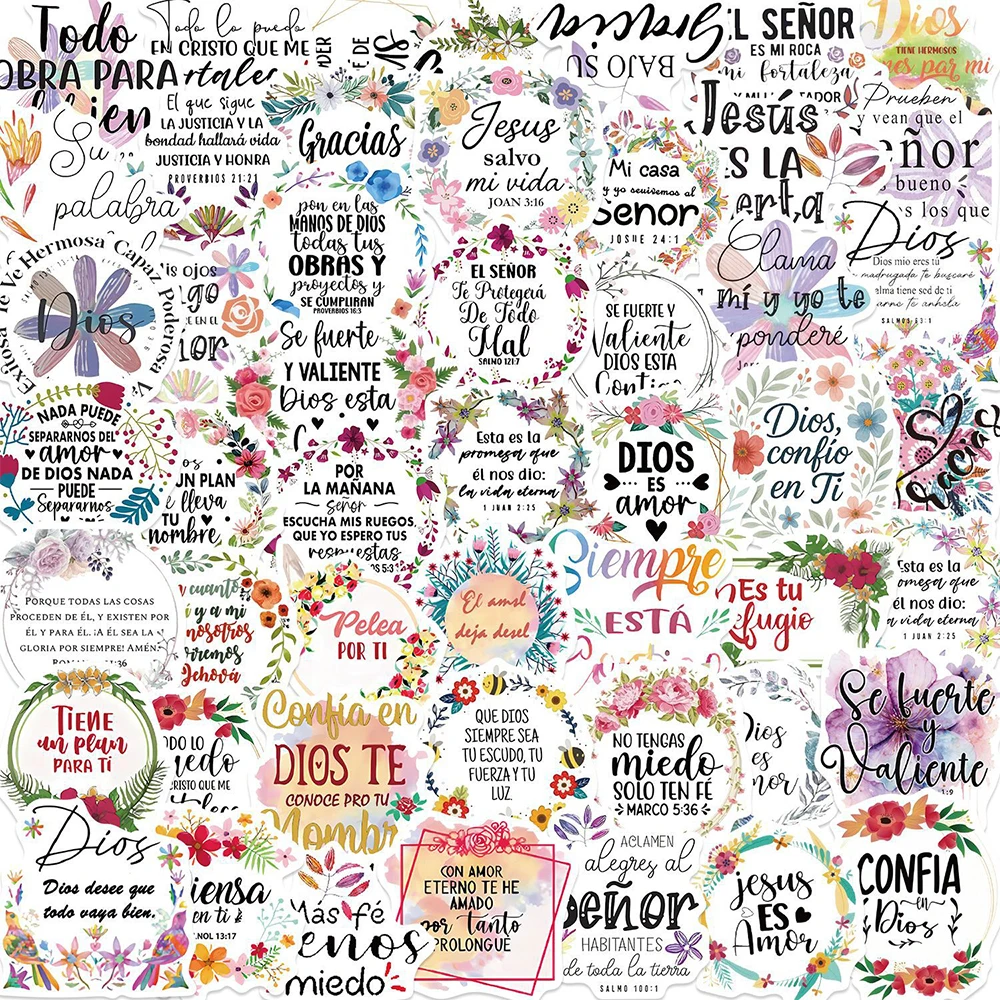 Todo
OBRA PARA
bien
Todo lo puedo
EN CRISTO QUE ME
BAJO SU
EL SEÑOR
ES MI ROCA
mi fortaleza
Dios
TIENE HERMOSOS
par mi
Su
palabra
El que sigue
LA JUSTICIA Y LA
bondad hallará vida
JUSTICIA Y HONRA
PROVERBIOS 21:21
Gracias
Jesus
salvo
mi vida
JOAN 3:16
Mi casa
y yo seuivemos al
Senor
JOSHE 24:1
Jesús
ES LA
Prueben
y vean que el
eñor
bueno
los que
pon en las
MANOS DE DIOS
todas tus
OBRAS Y
proyectos y
SE CUMPLIRAN
PROVERBIOS 16:3
EL SEÑOR
Te Protegerá
De Todo
Mal
SALMO 121:7
Exitosa Te Ve Hermosa Capaz Poderosa
Dios
SE FUERTE Y
Valiente
DIOS ESTA
Contigo
Clama
mí y yo te
ponderé
Dios
Dios mio eres tú
madrugada te buscaré
alma tiene sed de ti
carne te anhela
SALMOS 63:1
Se fuerte
Y VALIENTE
Dios esta
NADA PUEDE
SEPARARNOS DEL
amor
DE DIOS NADA
PUEDE
Separarnos
UN PLAN
lleva
TU
nombre
POR
LA MAÑANA
Señor
ESCUCHA MIS RUEGOS,
QUE YO ESPERO TUS
respuestas
Esta es la
promesa que
él nos dio:
la vida eterna
1 JUAN 2:25
DIOS
ES
amor
Dios,
confío
en Ti
Gracias
PORQUE TODAS LAS COSAS
PROCEDEN DE ÉL, Y EXISTEN POR
ÉL Y PARA ÉL. ¡A ÉL SEA LA
GLORIA POR SIEMPRE! AMÉN.
cuanto
y a mi
nosotros
Jehová
Pelea
POR TI
El amsl
deja desel
Siempre
ESTÁ
Es tu
efugio
Esta es la
omesa que
él nos dio:
la vida eterna
1 JUAN 2:25
TIENE
un plan
PARA TÍ
CRISTO QUE ME
Confía en
DIOS TE
CONOCE PRO TU
Nombr
QUE DIOS
SIEMPRE SEA
TU ESCUDO, TU
FUERZA Y TU
LUZ
NO TENGAS
miedo
SOLO TEN FE
MARCO 5:36
Dios
es
Se fuerte
y
Valiente
1:9
Dios
Dios desee que
todo vaya bien.
piensa
en ti
Más fé
enos
miedo
CON AMOR
ETERNO TE HE
AMADO
por tanto
PROLONGUÉ
ACLAMEN
alegres al
Señor
HABITANTES
de toda la tierra
SALMO 100:1
jesus
ES
Amor
CONFIA
en
Dios